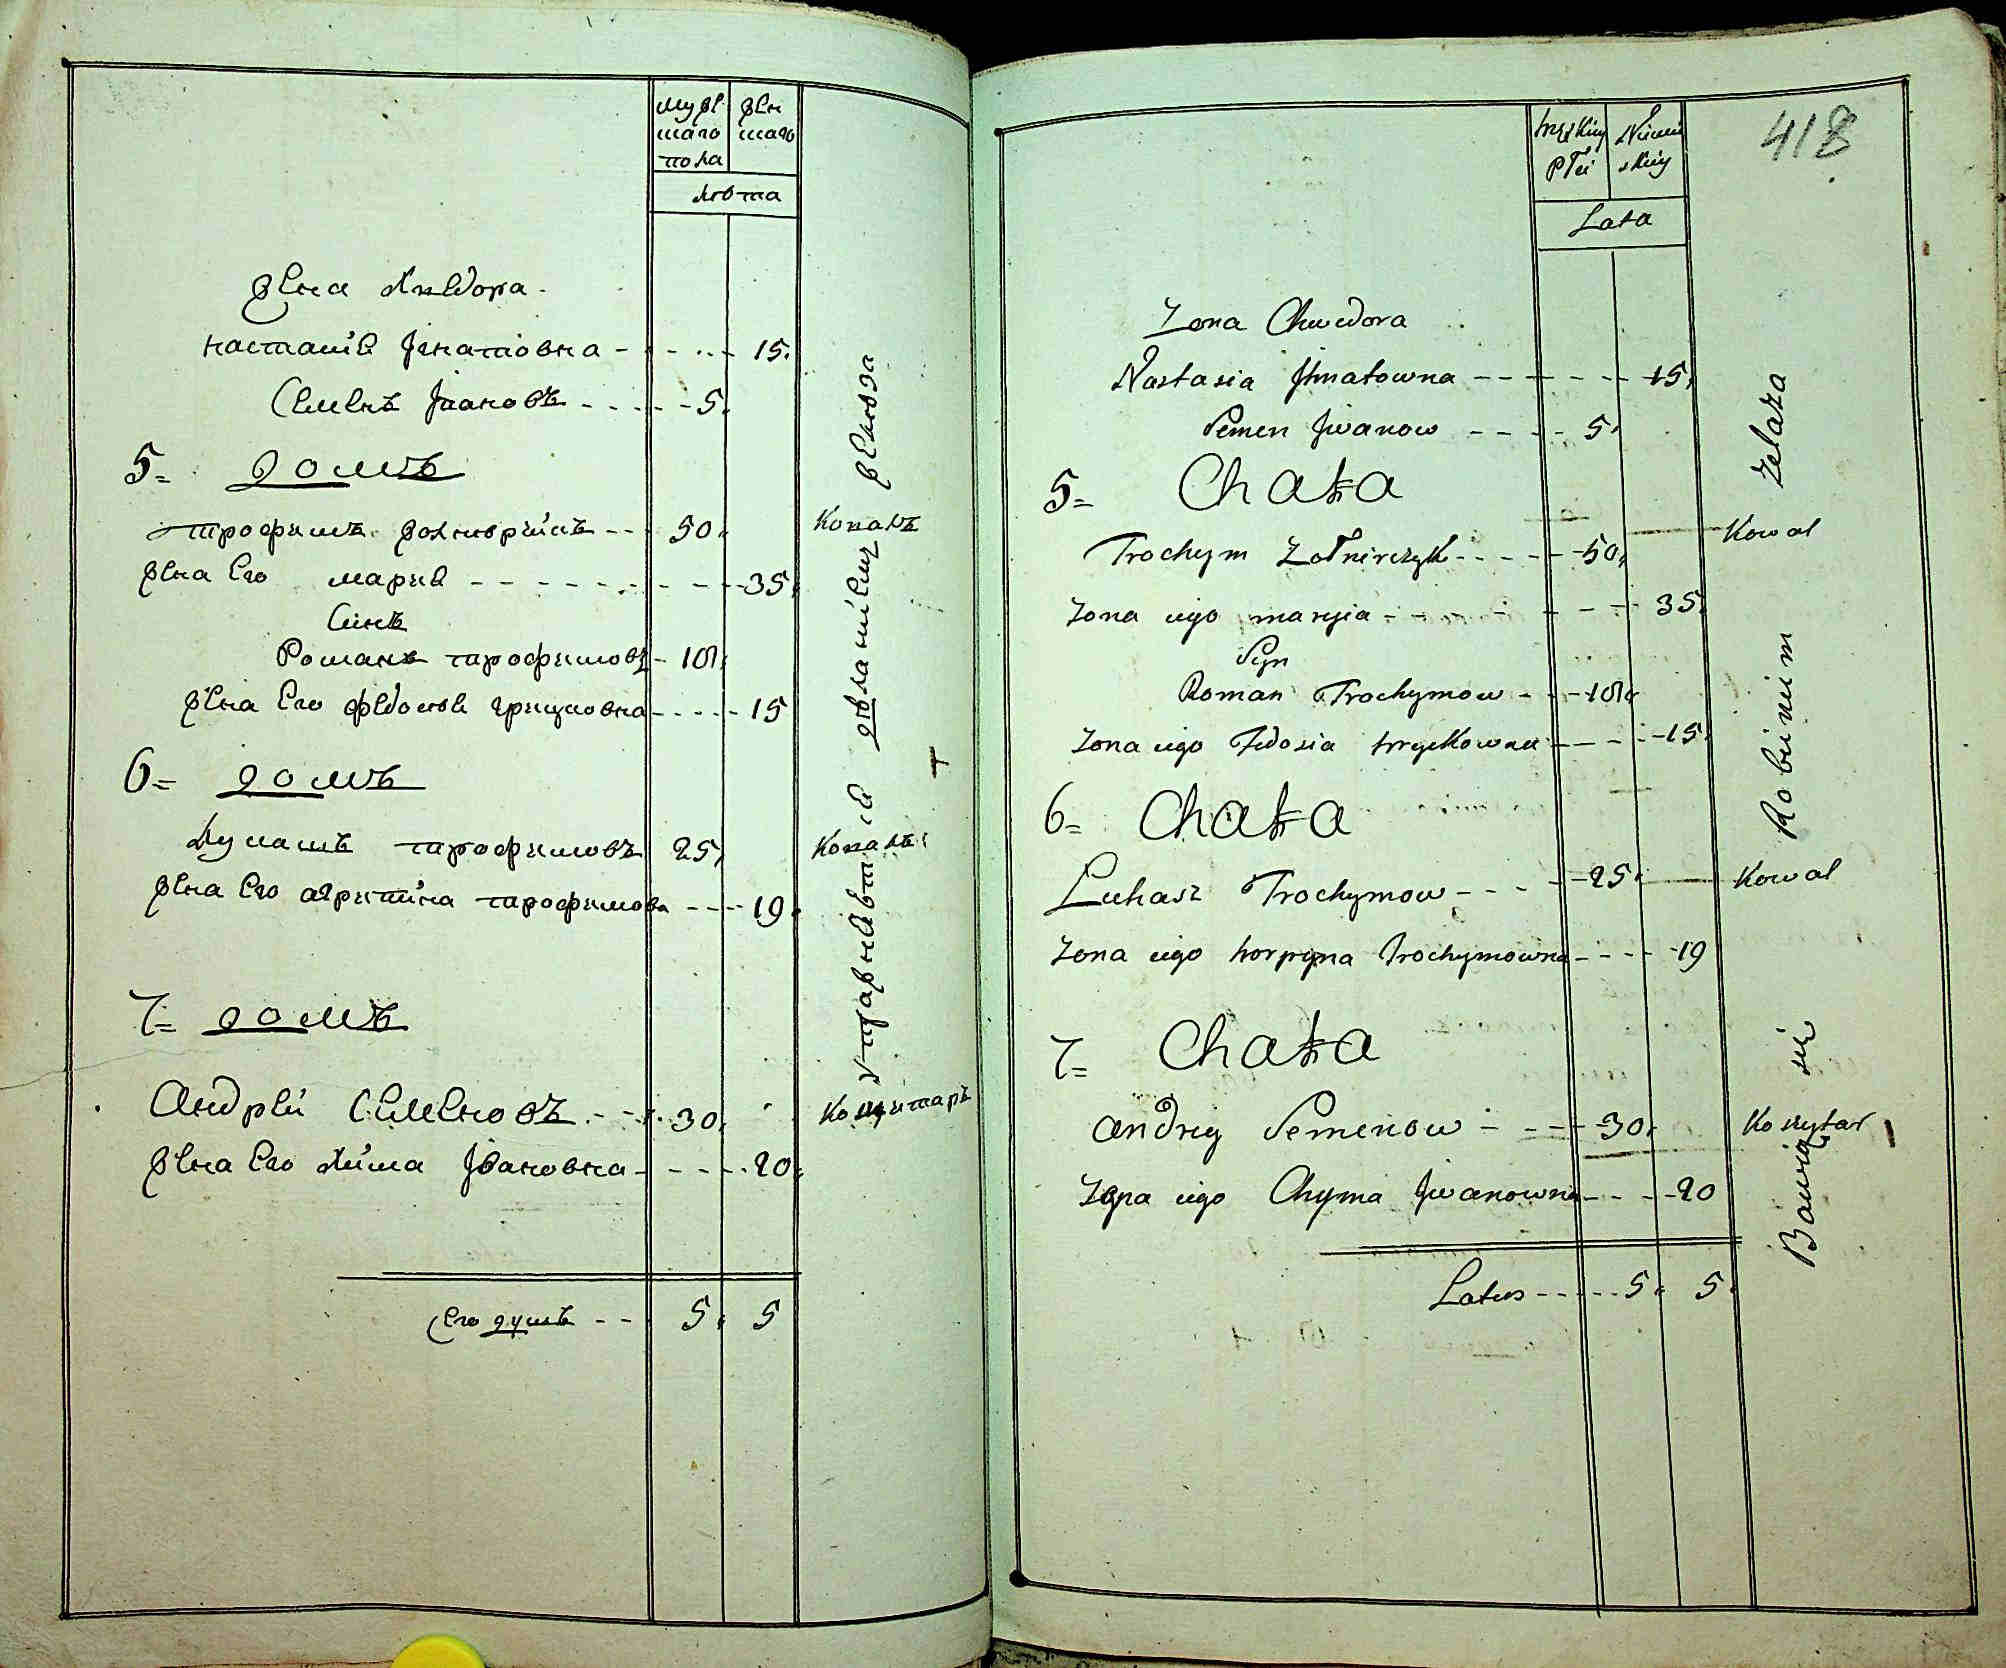 мужескаго пола
женскаго
лѣта
жена Хведора
настасія Ігнатовна 15.
Семенъ Івановъ 5.
5= домъ
трофимъ жолнѣрчикъ 50. Коваль
жена Его марія 35.
Синъ
Романъ трофимовъ 18.
жена Его федосия грицковна 15
6= домъ
Лукашъ трофимовъ 25. Коваль
жена Его агрипина трофимова 19.
7= домъ
Андрей Семеновъ 30. Кошитаръ
жена Его Хима Івановна 20.
Сего душъ 5. 5
железа
418
męzkiey Płci
Niewieskiey
Lata
Zona Chwedora
Nastasia Jhnatowna 15.
Semen Jwanow 5.
5= Chata
Trochym Zołnirczyk 50. Kowal
Zona iego maryia 35.
Syn
Roman Trochymow 18.
Zona iego Fedosia hryckowna 15.
6= Chata
Lukasz Trochymow 25. Kowal
Zona iego horpyna Trochymowna 19
7= Chata
Andriy Semenow 30. Koszytar
Zona iego Chyma Jwanowna 20
Latus 5. 5.
Bawią się Robieniem żelaza